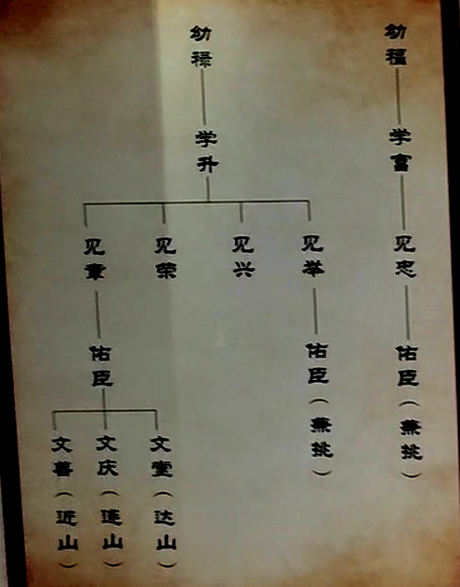 幼福
学富
见忠
佑臣（兼挑）
幼禄
学升
见举
见兴
见荣
见章
佑臣（兼挑）
佑臣
文堂（达山）
文庆（莲山）
文善（近山）